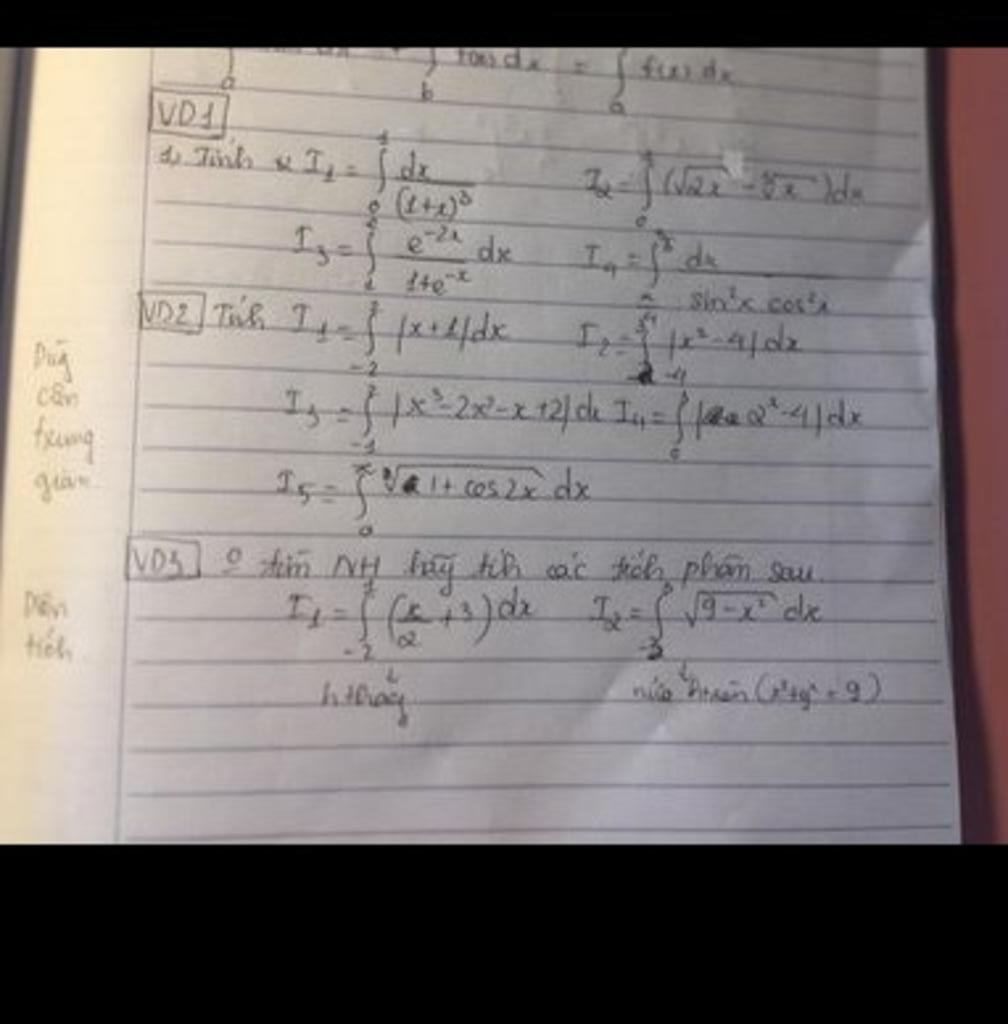 f(x) dx = ∫ₐ f(x) dx
VD1
1) Tính * I₁ = ∫₀¹ dx/(1+x)³ I₂ = ∫₀¹ (√2x - ∛x) dx
I₃ = ∫₁² e⁻²ˣ/(1+e⁻ˣ) dx I₄ = ∫ dx/(sin²x cos²x)
VD2 Tính I₁ = ∫₋₂² |x+1| dx I₂ = ∫₋₄ |x²-4| dx
Dùng
cận
trung
gian
I₃ = ∫₋₁² |x³-2x²-x+2| dx I₄ = ∫₀ |2ˣ-4| dx
I₅ = ∫₀ √(1+cos2x) dx
VD3 0 tìm NH hãy tích các tích phân sau
Diện
tích
I₁ = ∫₋₂ (x/2 + 3) dx I₂ = ∫₋₃³ √(9-x²) dx
h thang nửa htròn (x²+y² = 9)